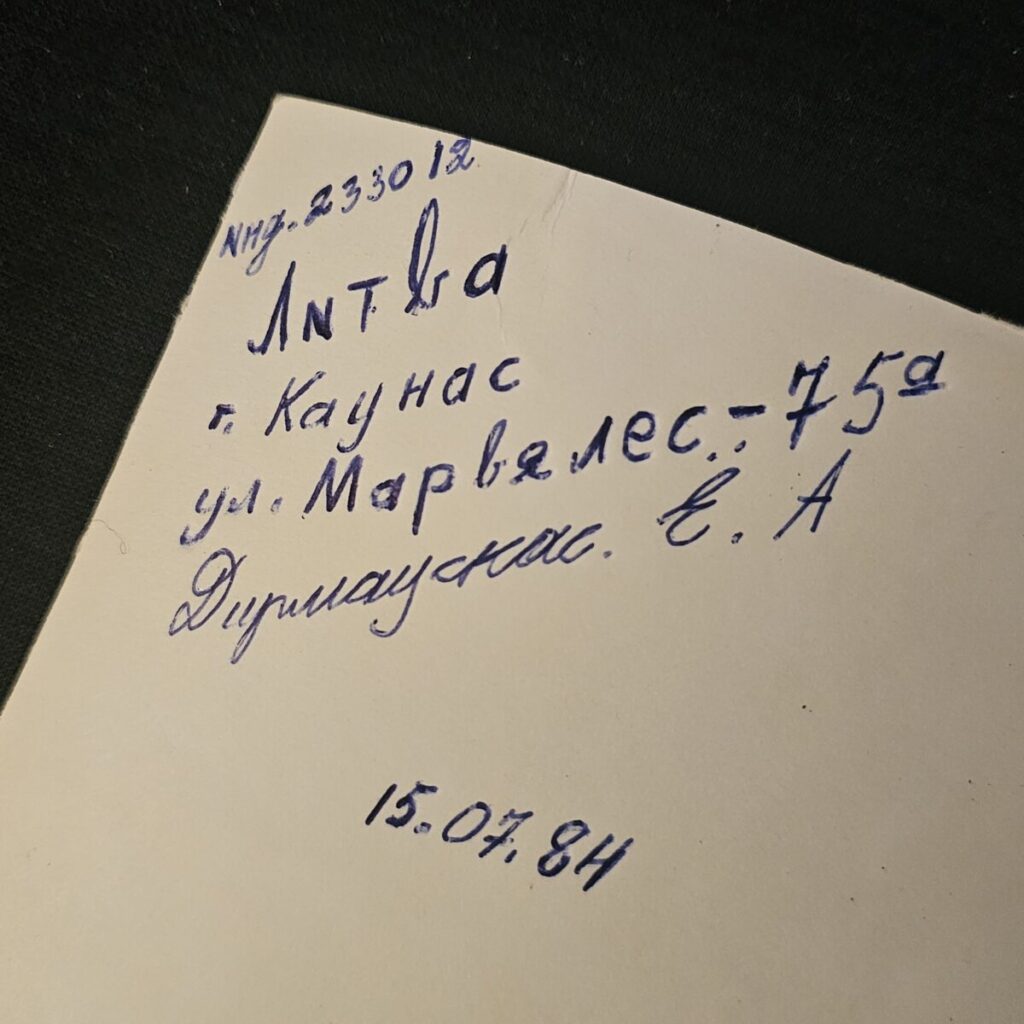 Инд. 233012
Литва
г. Каунас
ул. Марвялес.-75а
Дирмаускас. Е. А
15.07.84